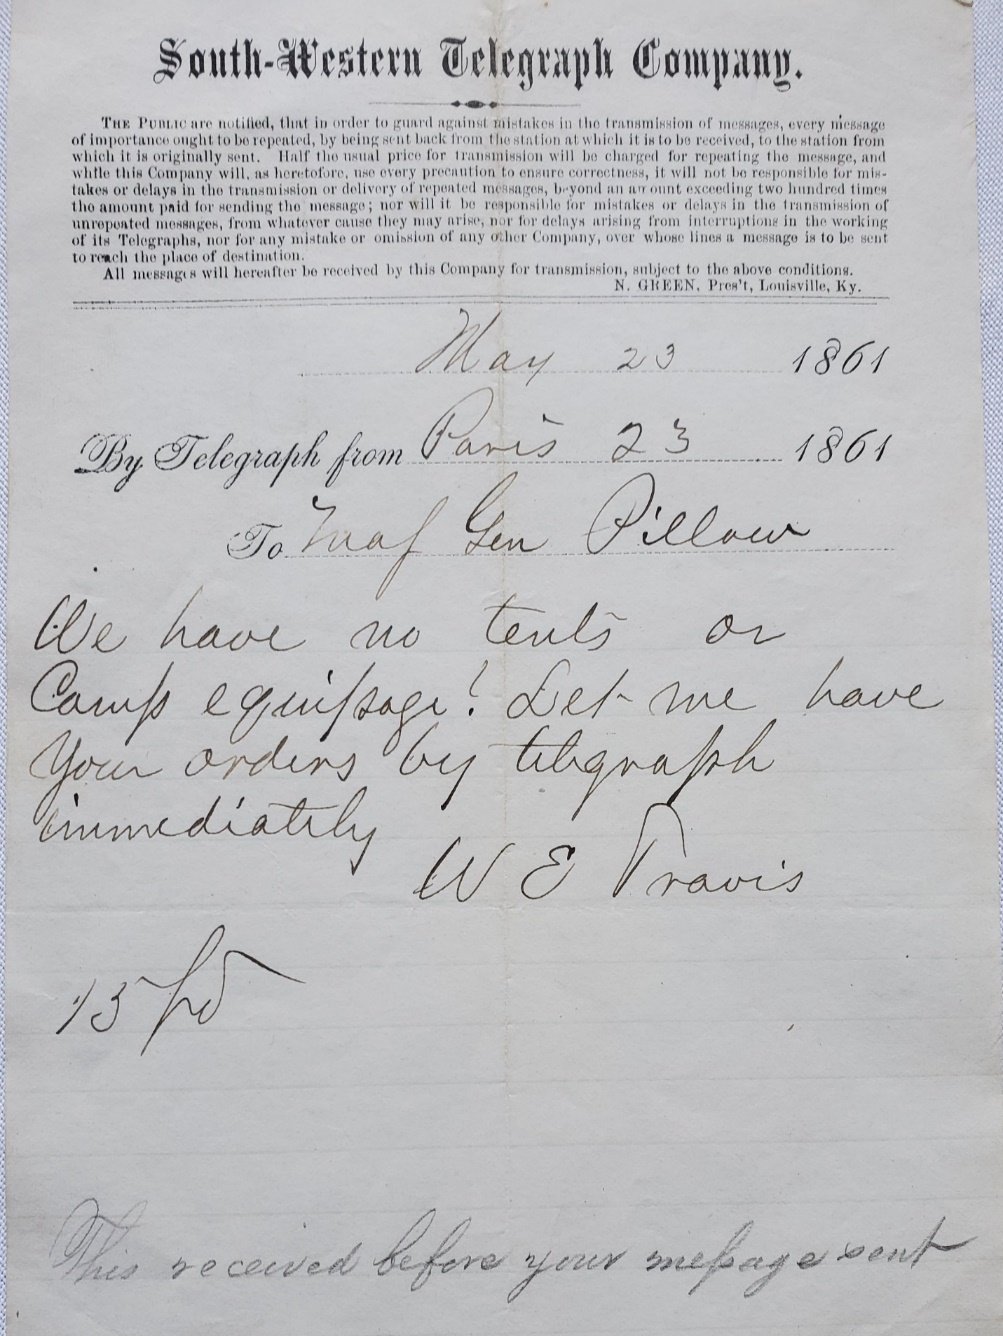 South-Western Telegraph Company.
THE PUBLIC are notified, that in order to guard against mistakes in the transmission of messages, every message
of importance ought to be repeated, by being sent back from the station at which it is to be received, to the station from
which it is originally sent. Half the usual price for transmission will be charged for repeating the message, and
while this Company will, as heretofore, use every precaution to ensure correctness, it will not be responsible for mis-
takes or delays in the transmission or delivery of repeated messages, beyond an amount exceeding two hundred times
the amount paid for sending the message; nor will it be responsible for mistakes or delays in the transmission of
unrepeated messages, from whatever cause they may arise, nor for delays arising from interruptions in the working
of its Telegraphs, nor for any mistake or omission of any other Company, over whose lines a message is to be sent
to reach the place of destination.
All messages will hereafter be received by this Company for transmission, subject to the above conditions.
N. GREEN, Pres't, Louisville, Ky.
May 23 1861
By Telegraph from Paris 23 1861
To Maj Gen Pillow
We have no tents or
Camp equipage! Let me have
Your orders by telegraph
immediately
W E Travis
15 pd
This received before your message sent